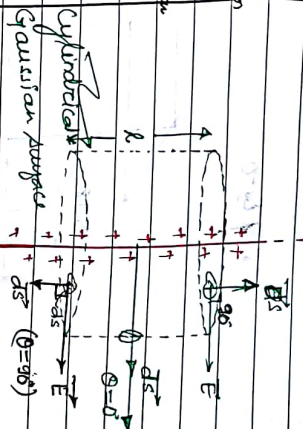 Cylindrical
Gaussian Surface
l
+ + + + + + +
+ + + + + + +
ds
90°
E
ds
θ=0°
ds
E
ds (θ=90°)